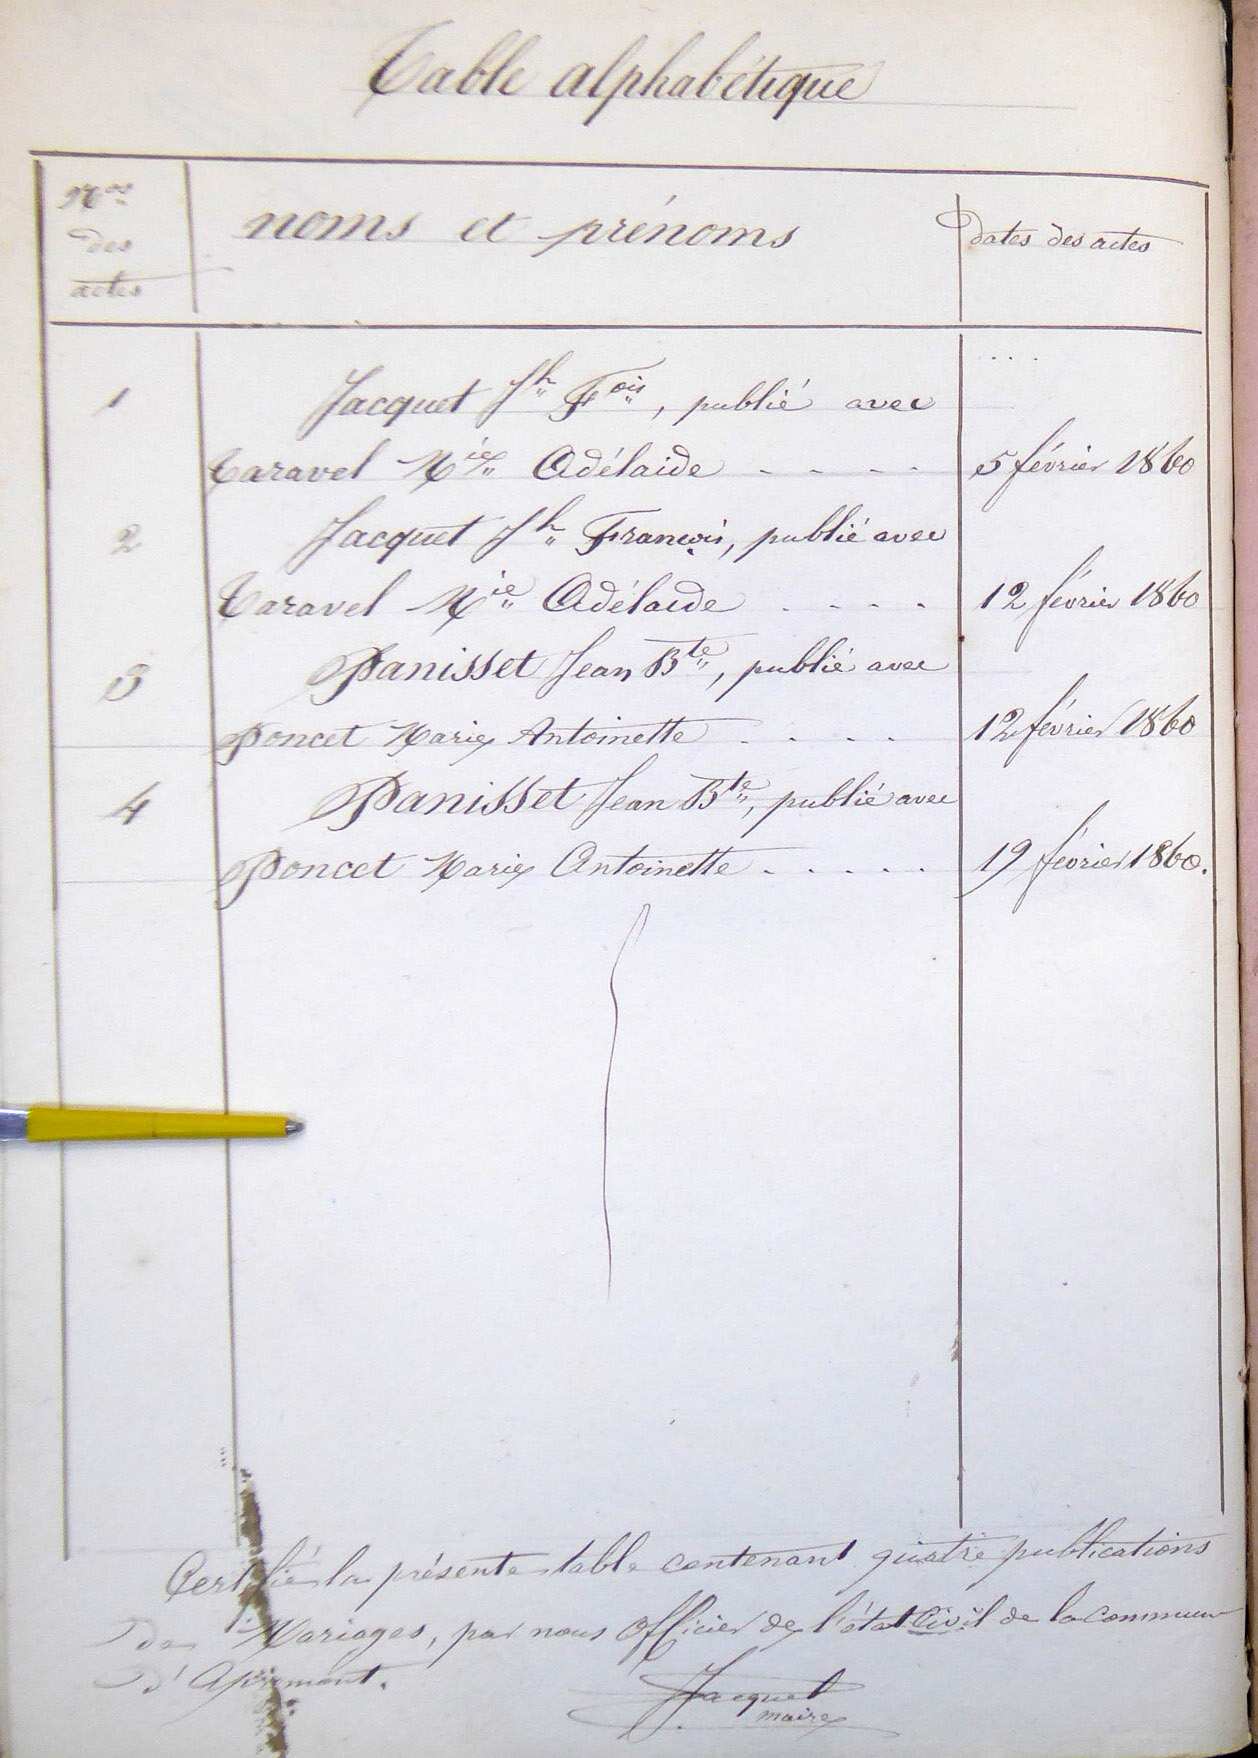 Table alphabétique
Nos
des
actes
noms et prénoms
Dates des actes
1
Jacquet Jh Fois, publié avec
Taravel Mie Adélaide - - - - 5 février 1860
2
Jacquet Jh François, publié avec
Taravel Mie Adélaide . . . . 12 février 1860
3
Panisset Jean Bte, publié avec
Poncet Marie Antoinette . . . . 12 février 1860
4
Panisset Jean Bte, publié avec
Poncet Marie Antoinette . . . . . 19 février 1860.
Certifié la présente table contenant quatre publications
de Mariages, par nous Officier de l'état Civil de la commune
d'Apremont.
Jacquet
maire